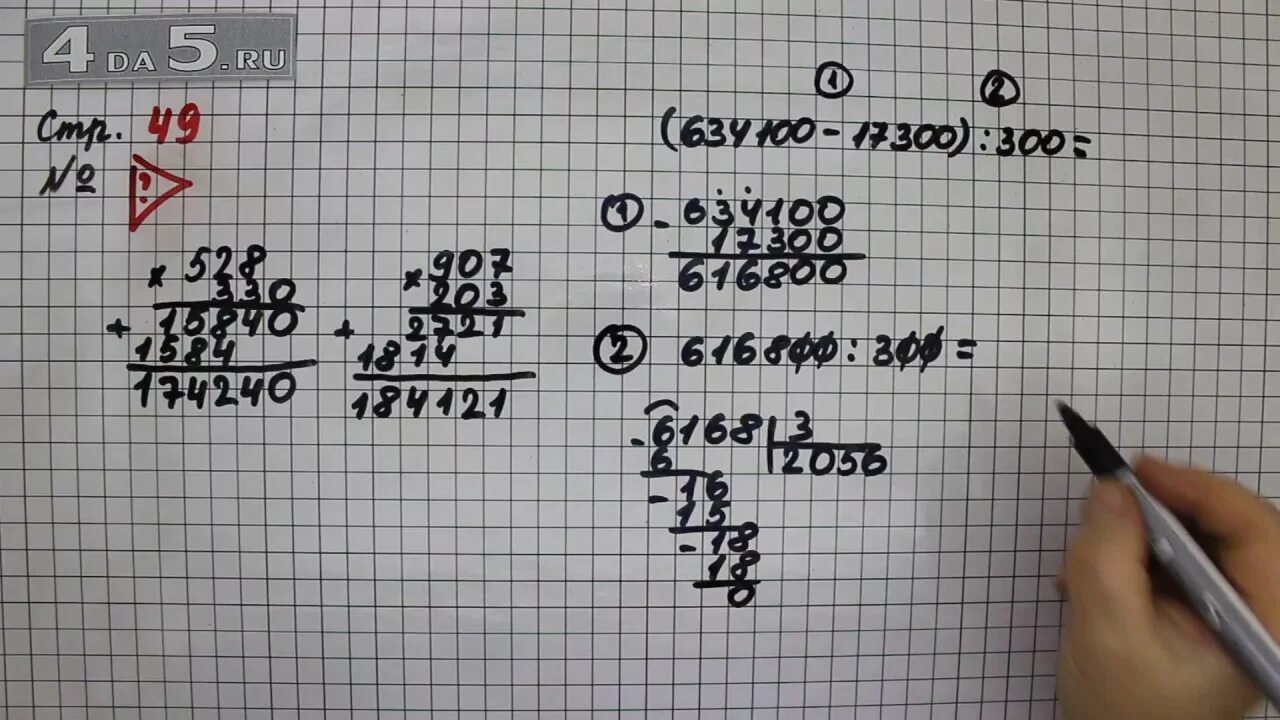 4 ДА 5.RU
Стр. 49
№ ?
× 528
330
+ 15840
1584
174240
× 907
203
+ 2721
1814
184121
① ②
(634100 - 17300) : 300 =
① - 634100
17300
616800
② 616800 : 300 =
- 6168 | 3
6 | 2056
- 16
15
- 18
18
0